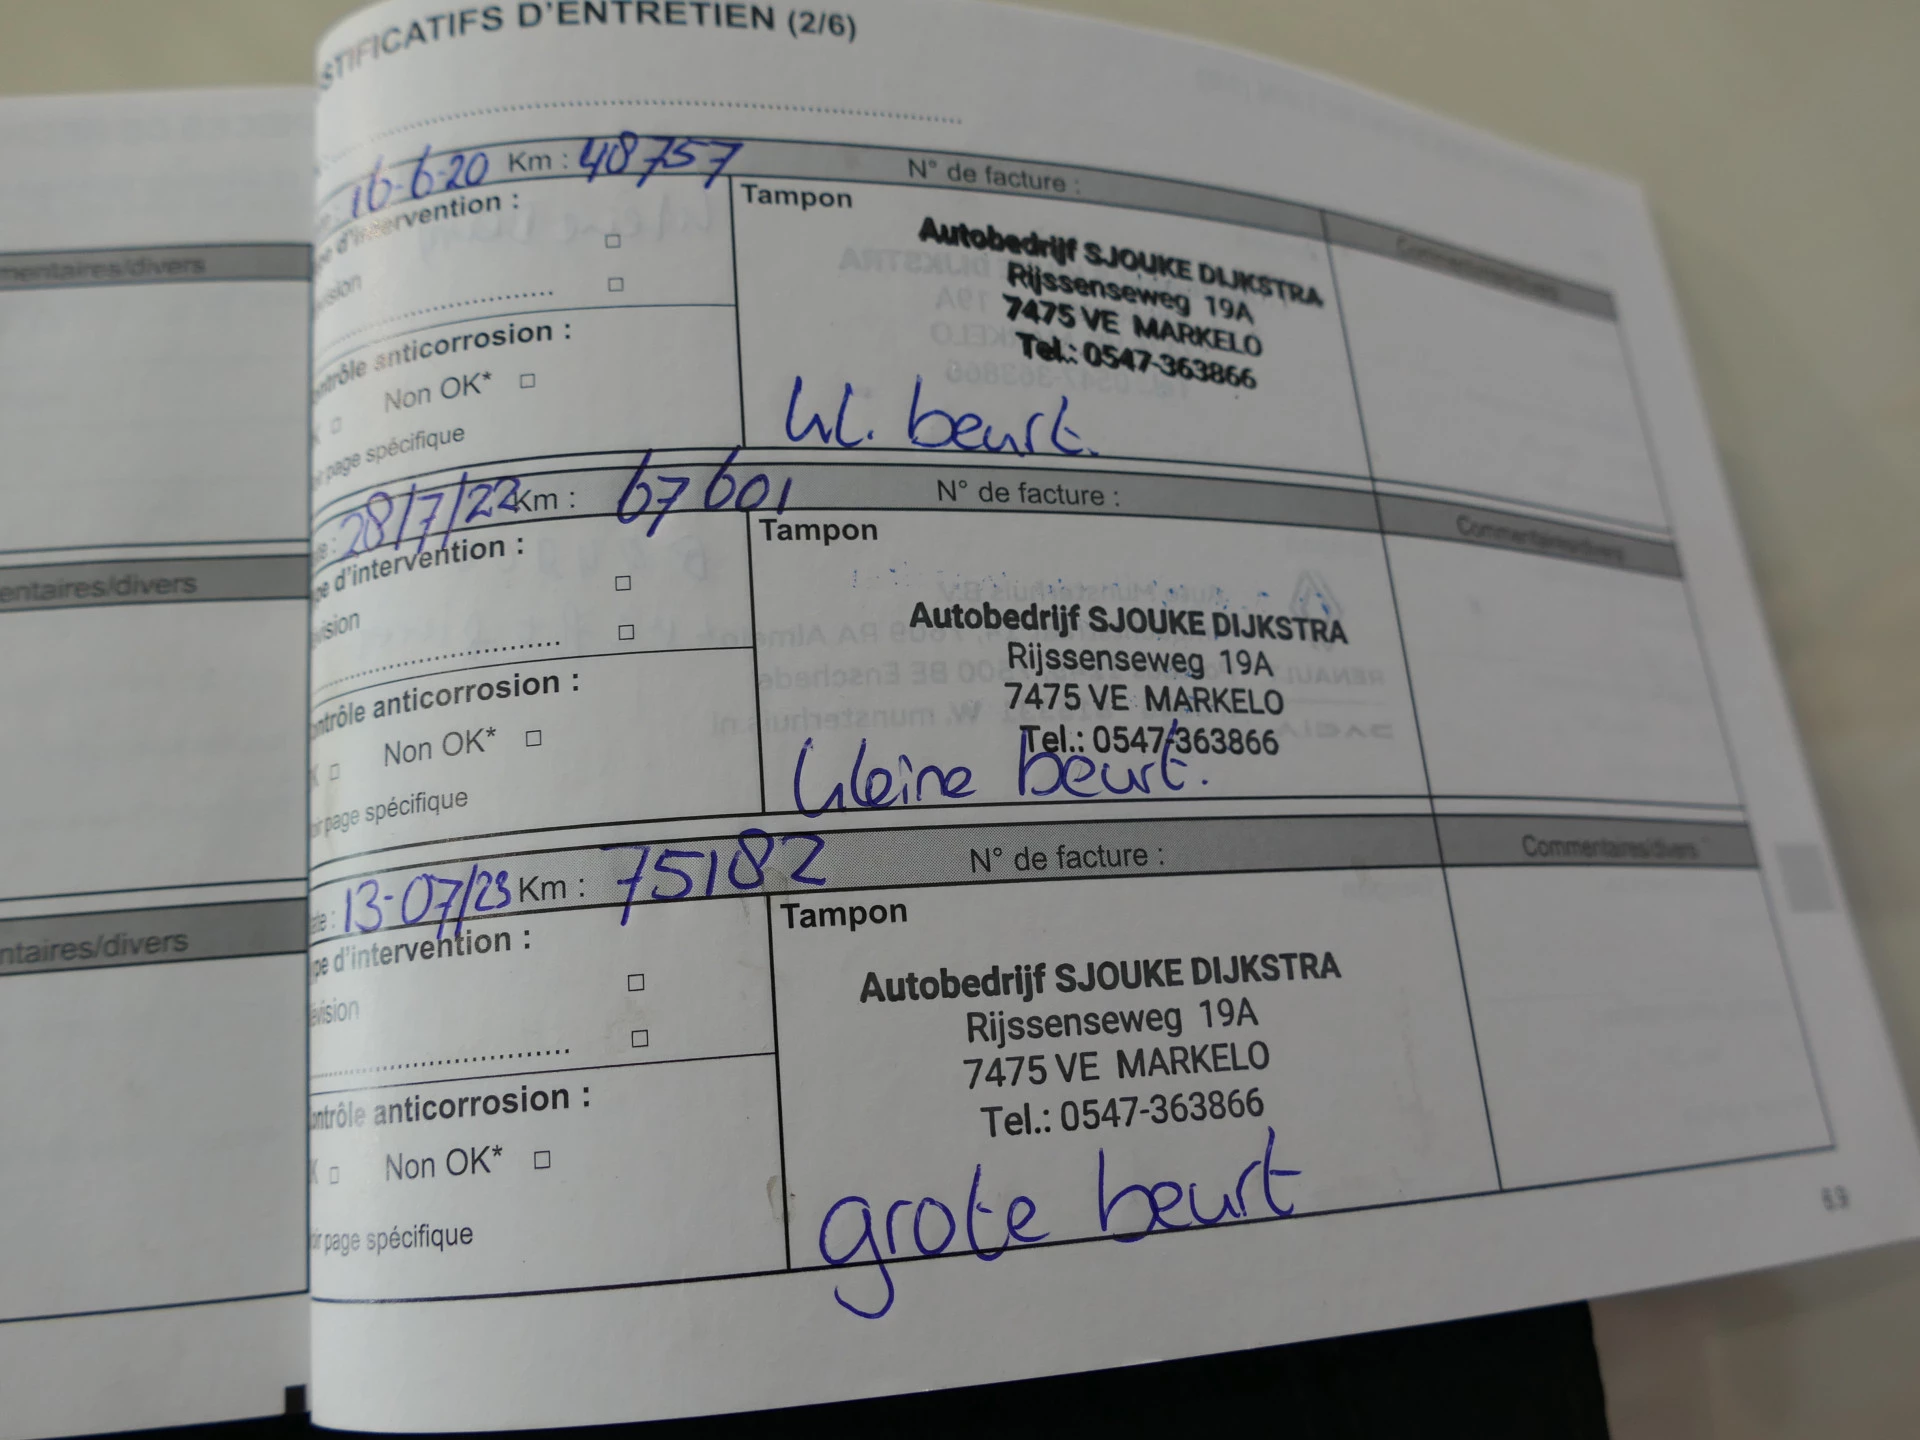 STIFICATIFS D'ENTRETIEN (2/6)
16-6-20 Km : 48757 N° de facture :
Commentaires/divers
pe d'intervention :
vision
Tampon
Autobedrijf SJOUKE DIJKSTRA
Rijssenseweg 19A
7475 VE MARKELO
Tel.: 0547-363866
kl. beurt.
ntrôle anticorrosion :
K Non OK*
ir page spécifique
mentaires/divers
te : 28/7/22 Km : 67601 N° de facture :
Commentaires/divers
pe d'intervention :
vision
Tampon
Autobedrijf SJOUKE DIJKSTRA
Rijssenseweg 19A
7475 VE MARKELO
Tel.: 0547-363866
kleine beurt.
ntrôle anticorrosion :
K Non OK*
ir page spécifique
entaires/divers
ate : 13-07/23 Km : 75182 N° de facture :
Commentaires/divers
pe d'intervention :
évision
Tampon
Autobedrijf SJOUKE DIJKSTRA
Rijssenseweg 19A
7475 VE MARKELO
Tel.: 0547-363866
grote beurt
ontrôle anticorrosion :
K Non OK*
ir page spécifique
ntaires/divers
6.9